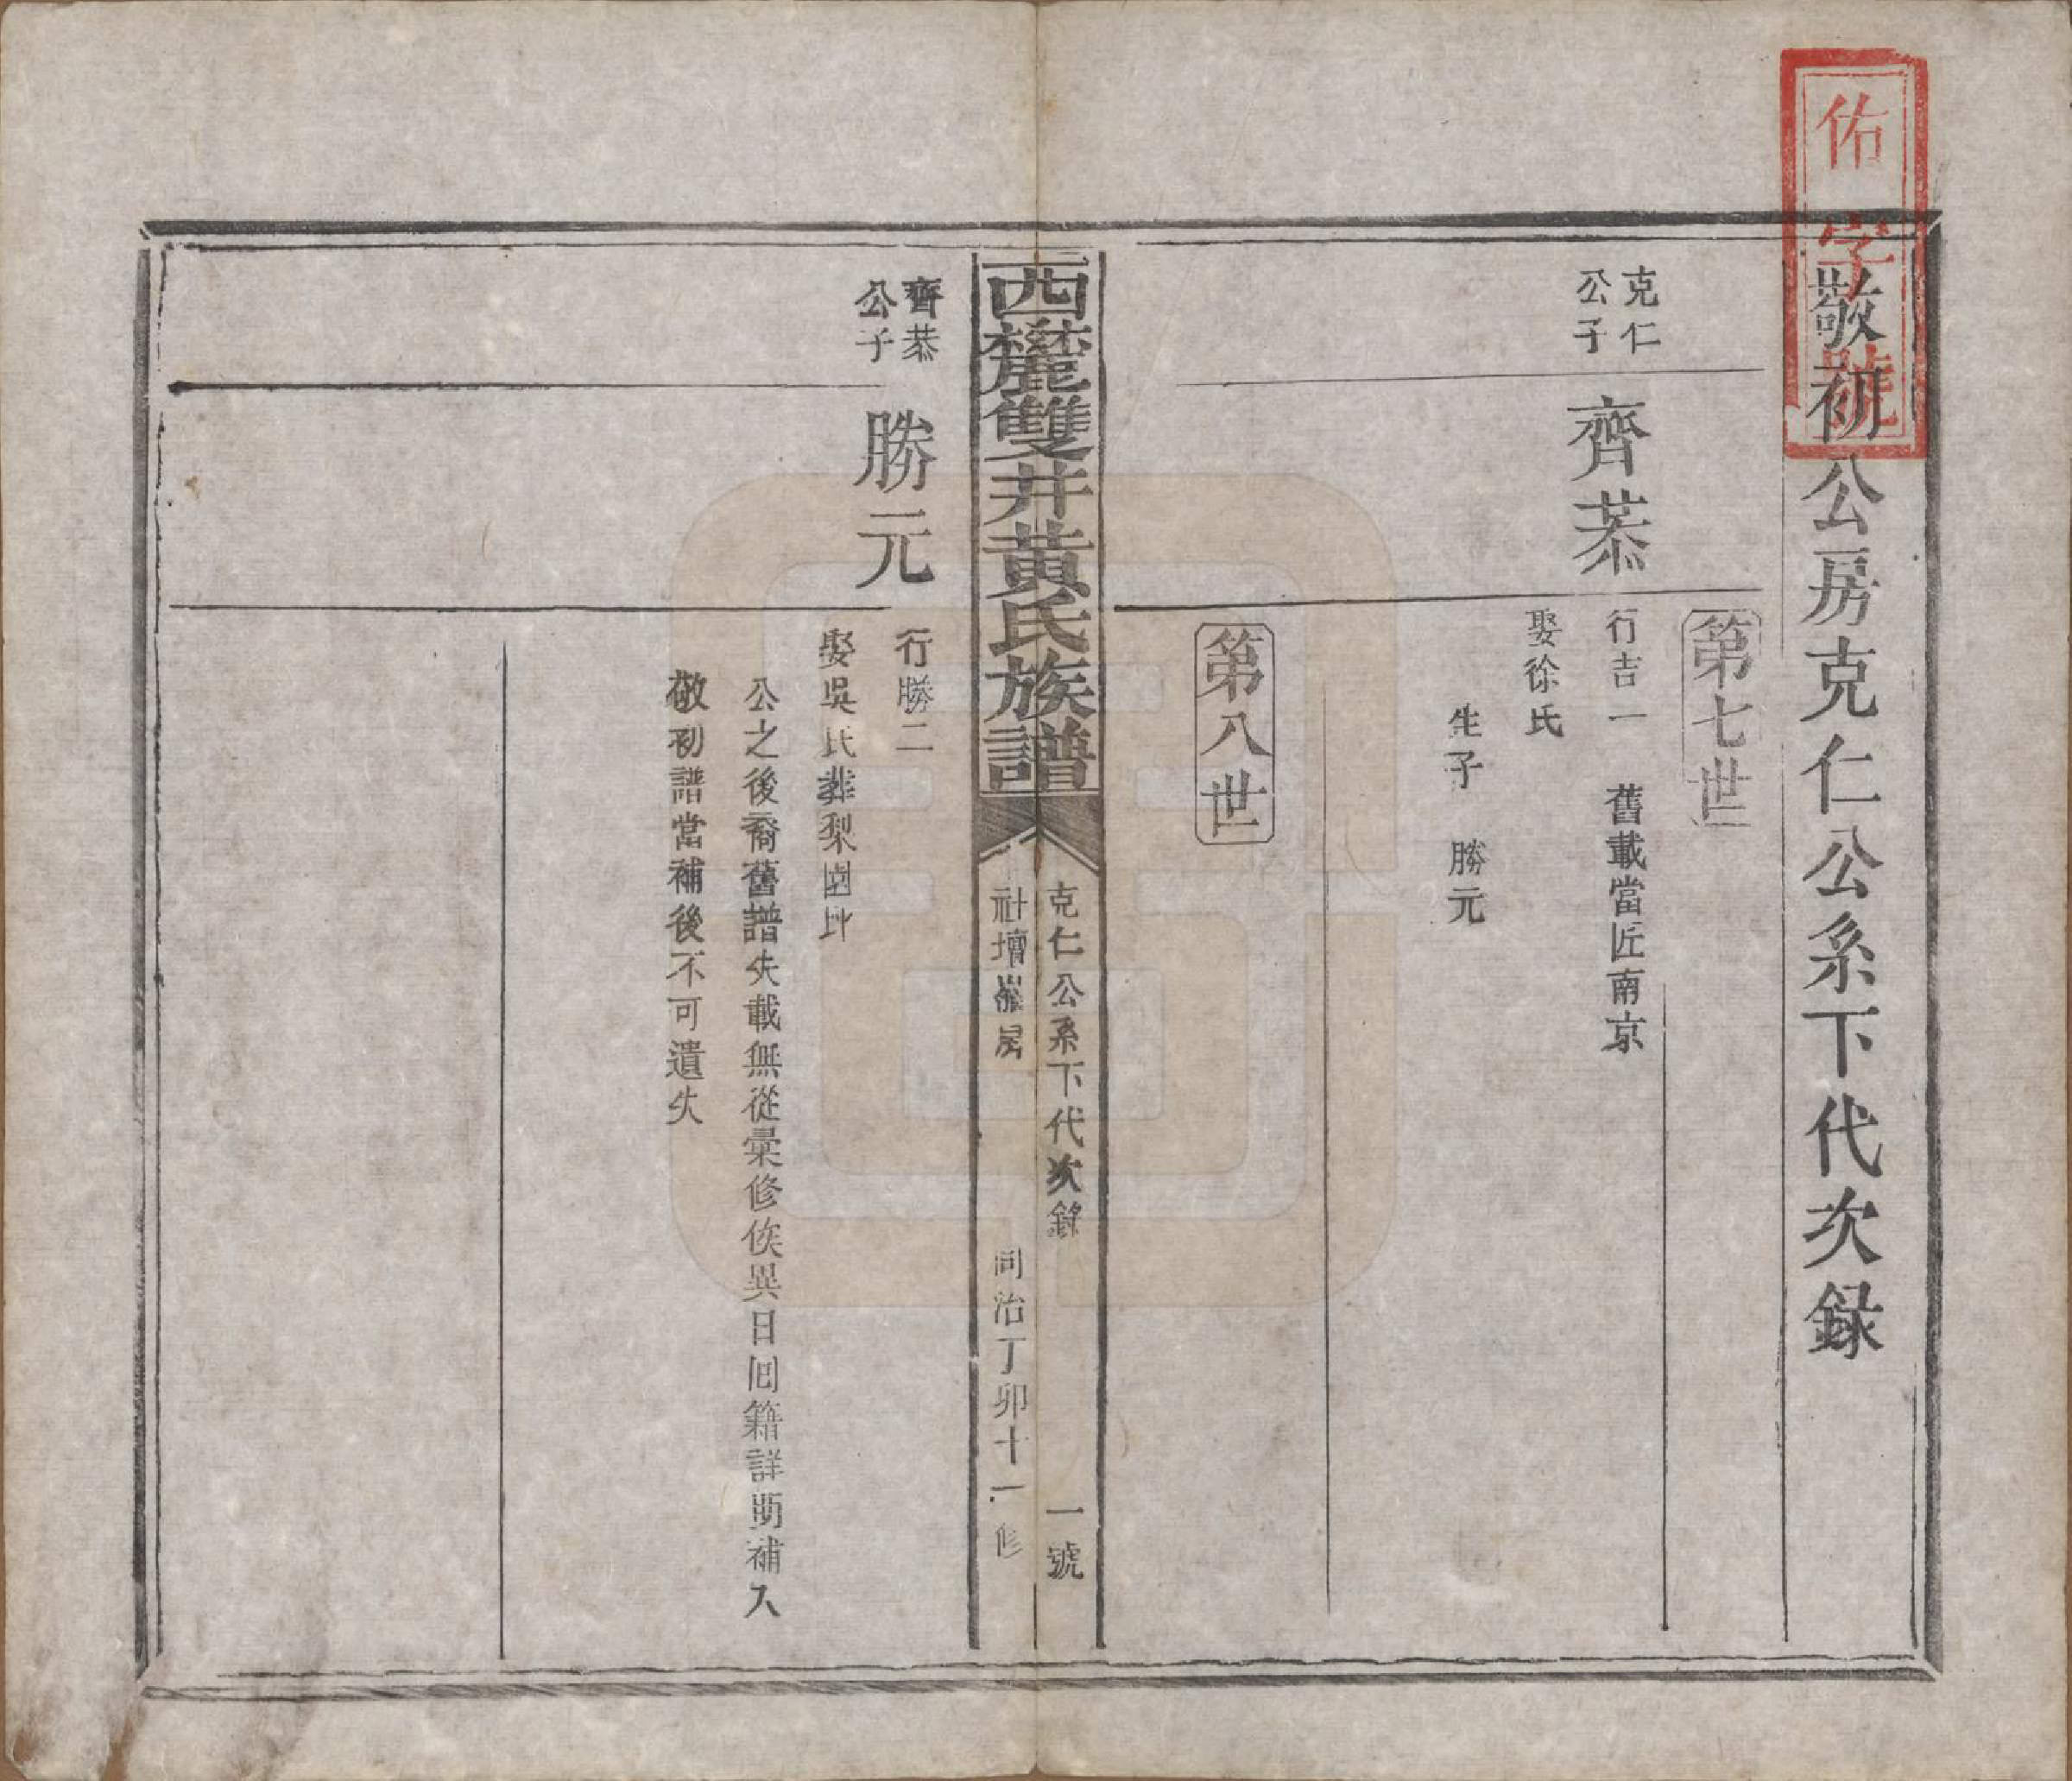 佑字號
敬初公房克仁公系下代次錄
第七世
克仁
公子
齊恭
行吉一　舊載當匠南京
娶徐氏
生子　勝元
第八世
西麓雙井黃氏族譜
克仁公系下代次錄　一號
社壇嶺房　同治丁卯十一修
齊恭
公子
勝元
行勝二
娶吳氏葬梨園坵
公之後裔舊譜失載無從彙修俟異日回籍詳明補入
敬初譜當補後不可遺失